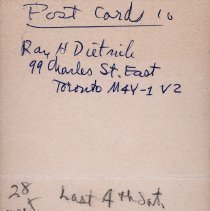 Post Card 10
Ray H Dietrich
99 Charles St. East
Toronto M4Y-1 V2
28 Last 4th Sat.